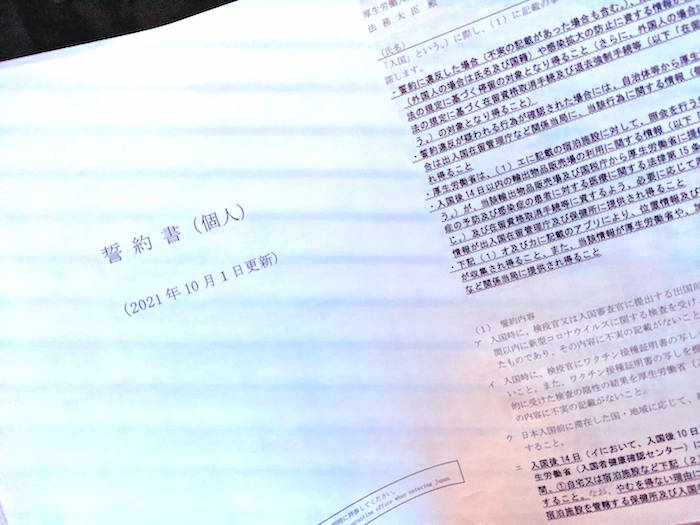 誓約書（個人）
（2021年10月1日更新）
厚生労働
法務大臣 殿
（氏名）
「入国」という。）に際し、（1）に記載の事
諾します。
・誓約に違反した場合（不実の記載があった場合も含む。）、
（外国人の場合は氏名及び国籍）や感染拡大の防止に資する情報が
法の規定に基づく停留の対象となり得ること（さらに、外国人の場合
法の規定に基づく在留資格取消手続及び退去強制手続等（以下「在
う。）の対象となり得ること）
・誓約違反が疑われる行為が確認された場合には、自治体等から厚生
合は出入国在留管理庁など関係当局に、当該行為に関する情報
れ得ること
・厚生労働省は、（1）エに記載の宿泊施設に対して、照会を行う
・入国後14日以内の輸出物品販売場の利用に関する情報（以下
う。）が、当該輸出物品販売場及び国税庁から厚生労働省に
症の予防及び感染症の患者に対する医療に関する法律第15条
じ。）及び在留資格取消手続等に資するよう、必要に応じて
情報が出入国在留管理庁及び保健所に提供され得ること
・下記（1）オ及び力に記載のアプリにより、位置情報及
が収集され得ること、また、当該情報が厚生労働省や
など関係当局に提供され得ること
（1） 誓約内容
ア 入国時に、検疫官又は入国審査官に提出する出国前
間以内に新型コロナウイルスに関する検査を受け
たものであり、その内容に不実の記載がないこと
イ 入国時に、検疫官にワクチン接種証明書の写しを
いこと。また、ワクチン接種証明書の写しを
的に受けた検査の陰性の結果を厚生労働省
の内容に不実の記載がないこと。
ウ 日本入国前に滞在した国・地域に応じて、
すること。
エ 入国後14日（イにおいて、入国後10日
生労働省（入国者健康確認センター）に
間、①自宅又は宿泊施設など下記（2
すること。なお、やむを得ない理由に
宿泊施設を管轄する保健所及び入国
国時に持参してください。
quarantine office when entering Japan.